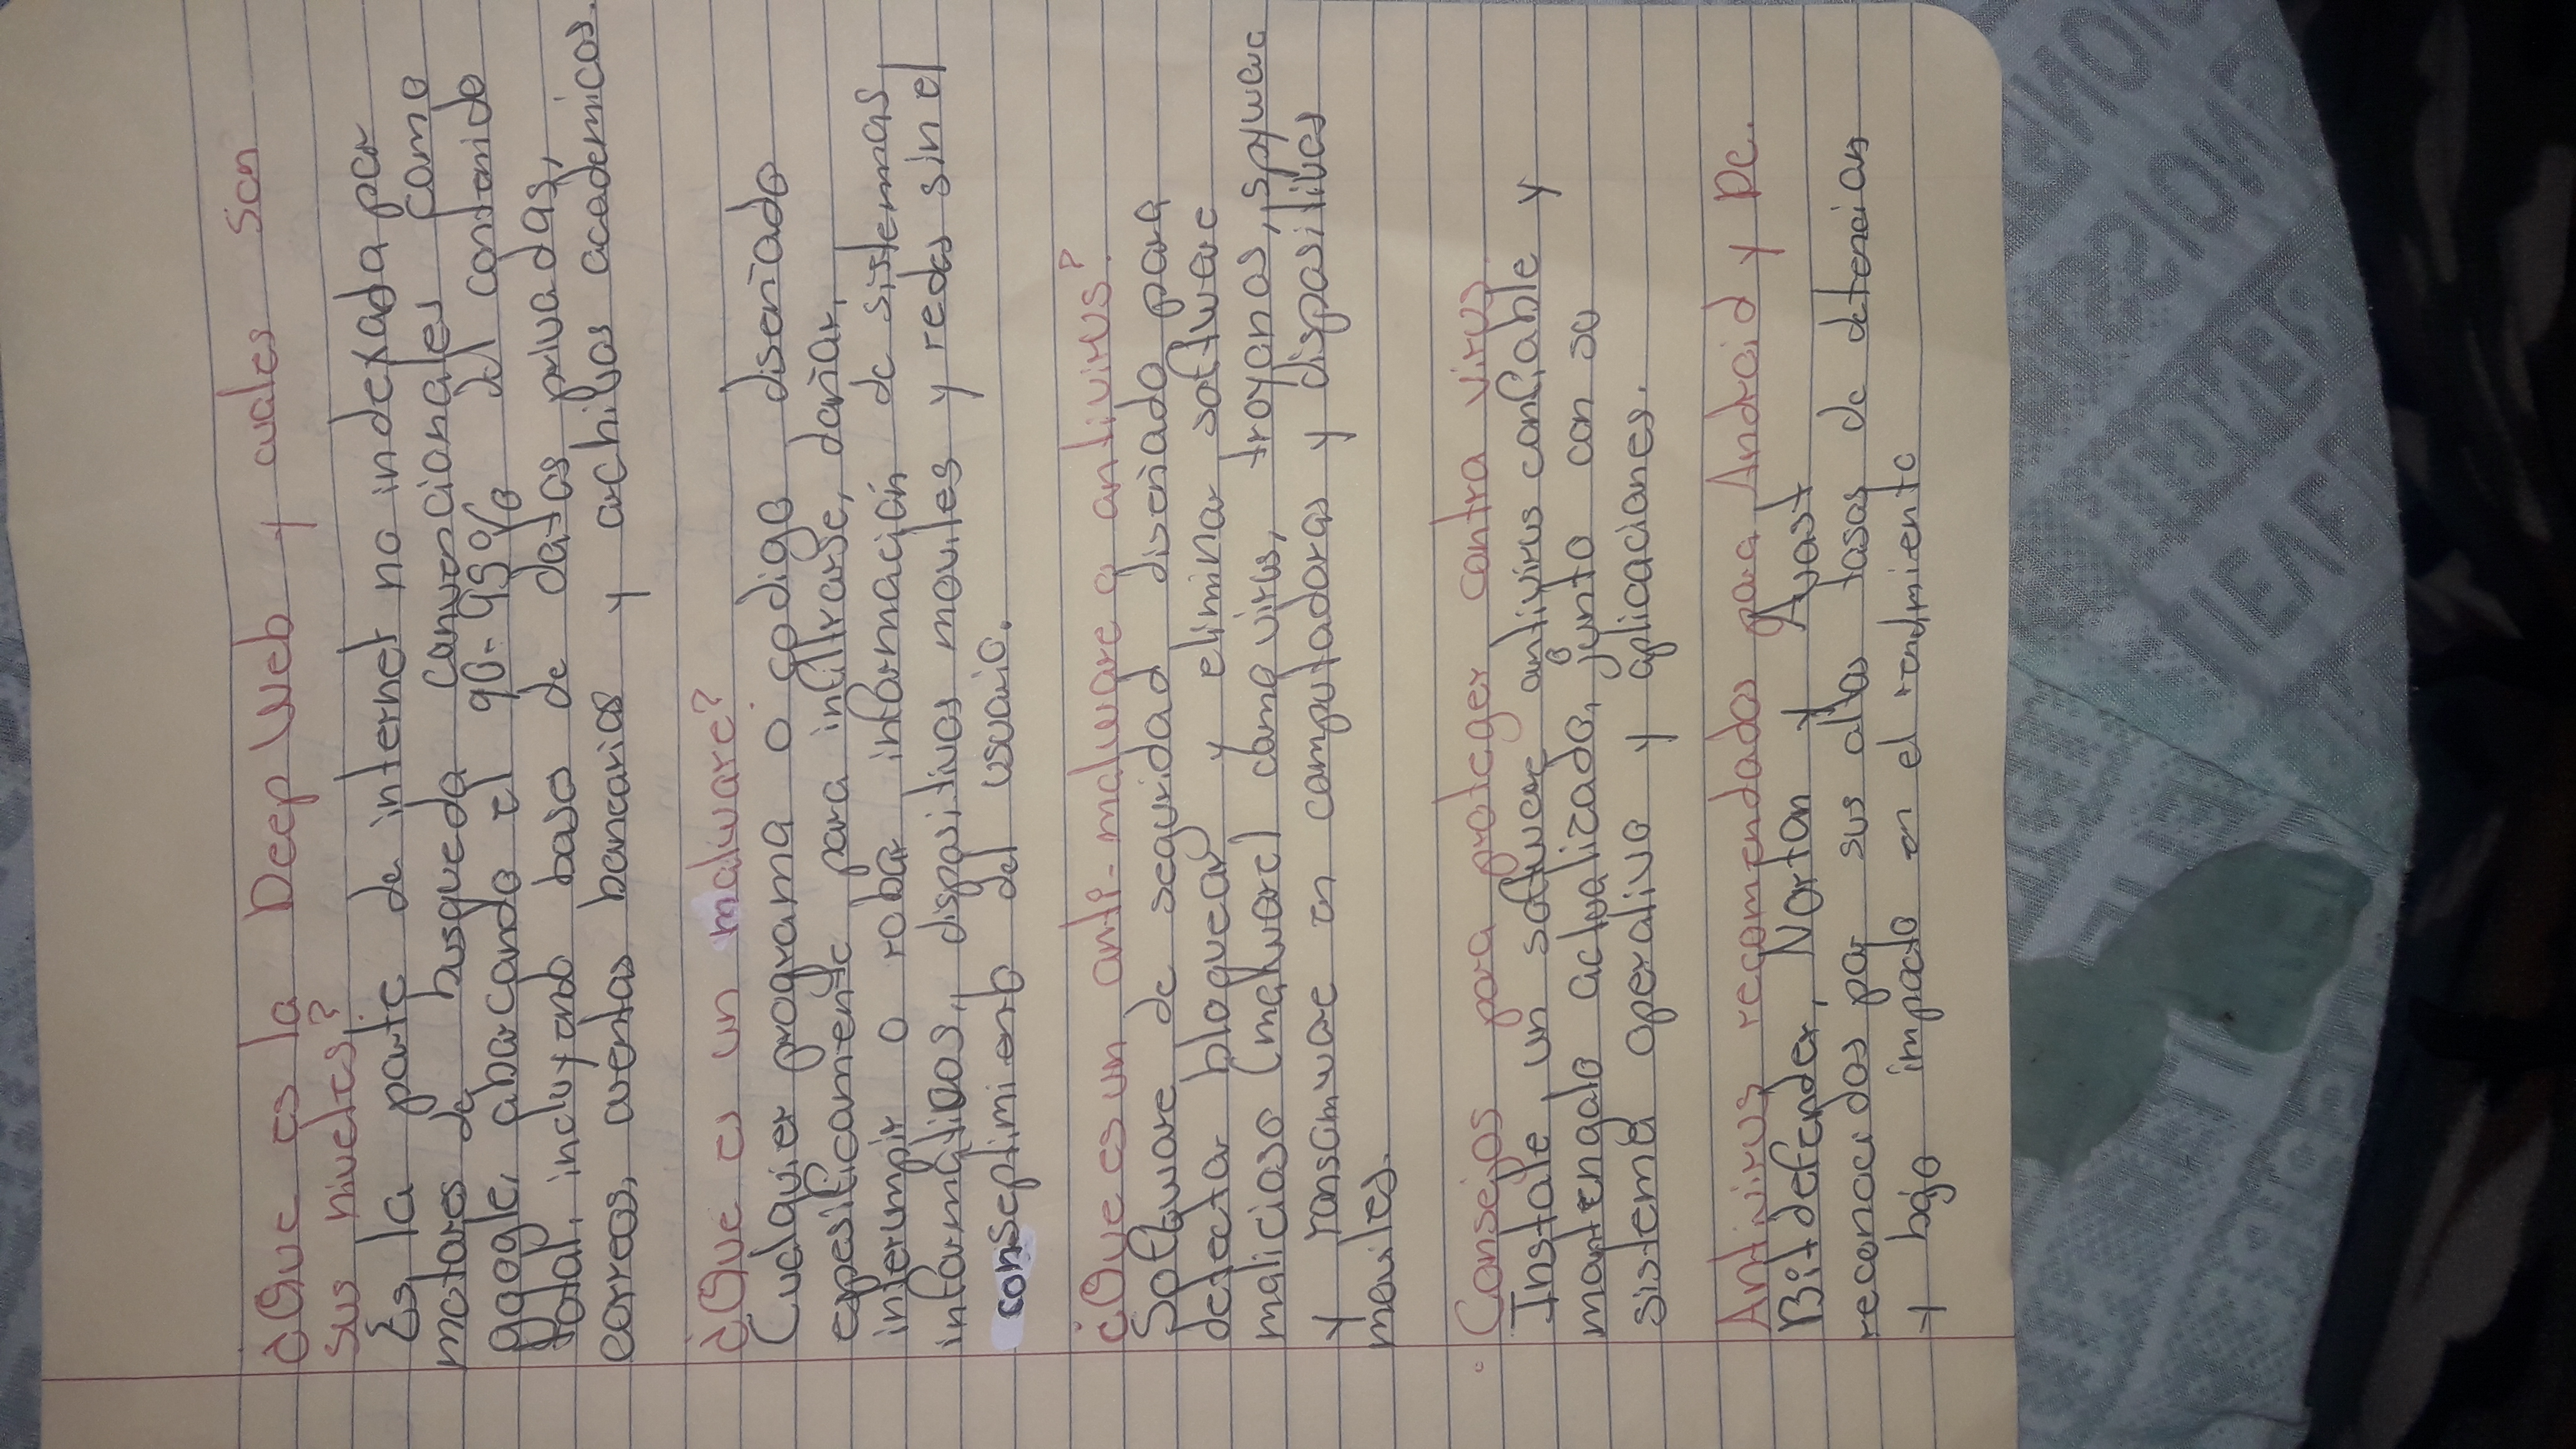 ¿Que es la Deep Web y cuales son
sus niveles?
Es la parte de internet no indexada por
motores de busqueda convencionales como
google, abarcando el 90-95% del contenido
total, incluyendo bases de datos privadas,
correos, cuentas bancarias y archivos academicos.
¿Que es un malware?
Cualquier programa o codigo diseñado
especificamente para infiltrarse, dañar,
interrumpir o robar información de sistemas
informaticos, dispositivos moviles y redes sin el
conseptimiento del usuario.
¿Que es un anti-malware o antivirus?
Software de seguridad diseñado para
detectar bloquear y eliminar software
malicioso (malware) como virus, troyanos, spyware
y ransamware en computadoras y dispositivos
moviles.
Consejos para proteger contra virus
Instale un software antivirus confiable y
mantengalo actualizado, junto con su
sistema operativo y aplicaciones.
Antivirus recomendados para Android y pc.
Bitdefender, Norton y Avast
reconocidos por sus altas tasas de detención
y bajo impacto en el rendimiento